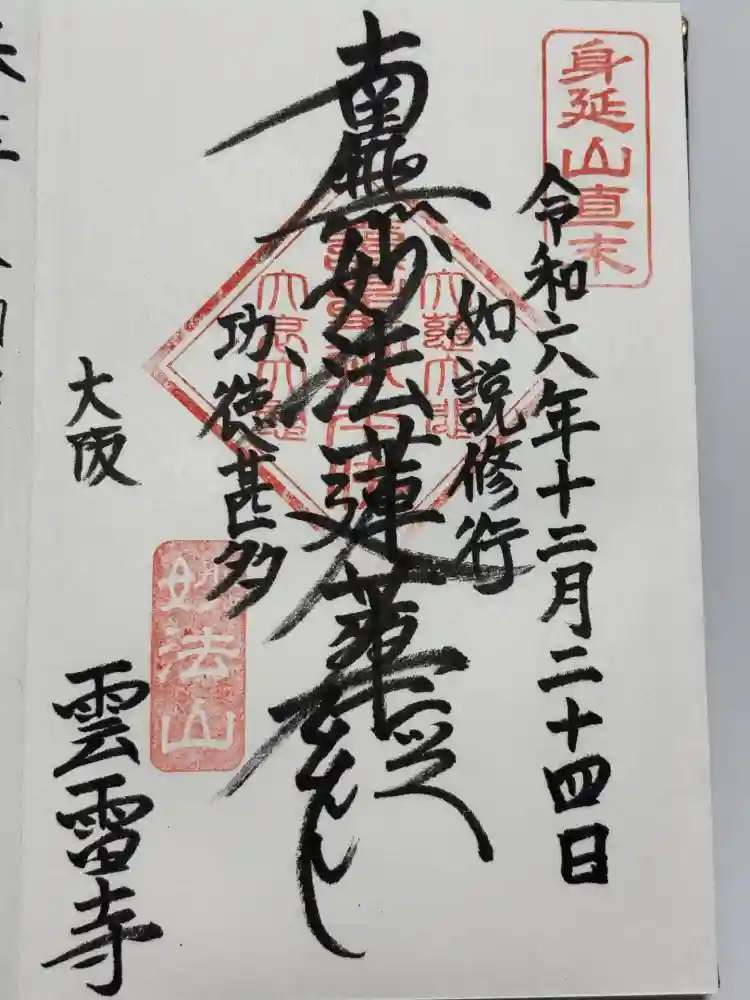 身延山直末
令和六年十二月二十四日
如説修行
南無妙法蓮華経
功徳甚多
妙法山
大阪
雲雷寺